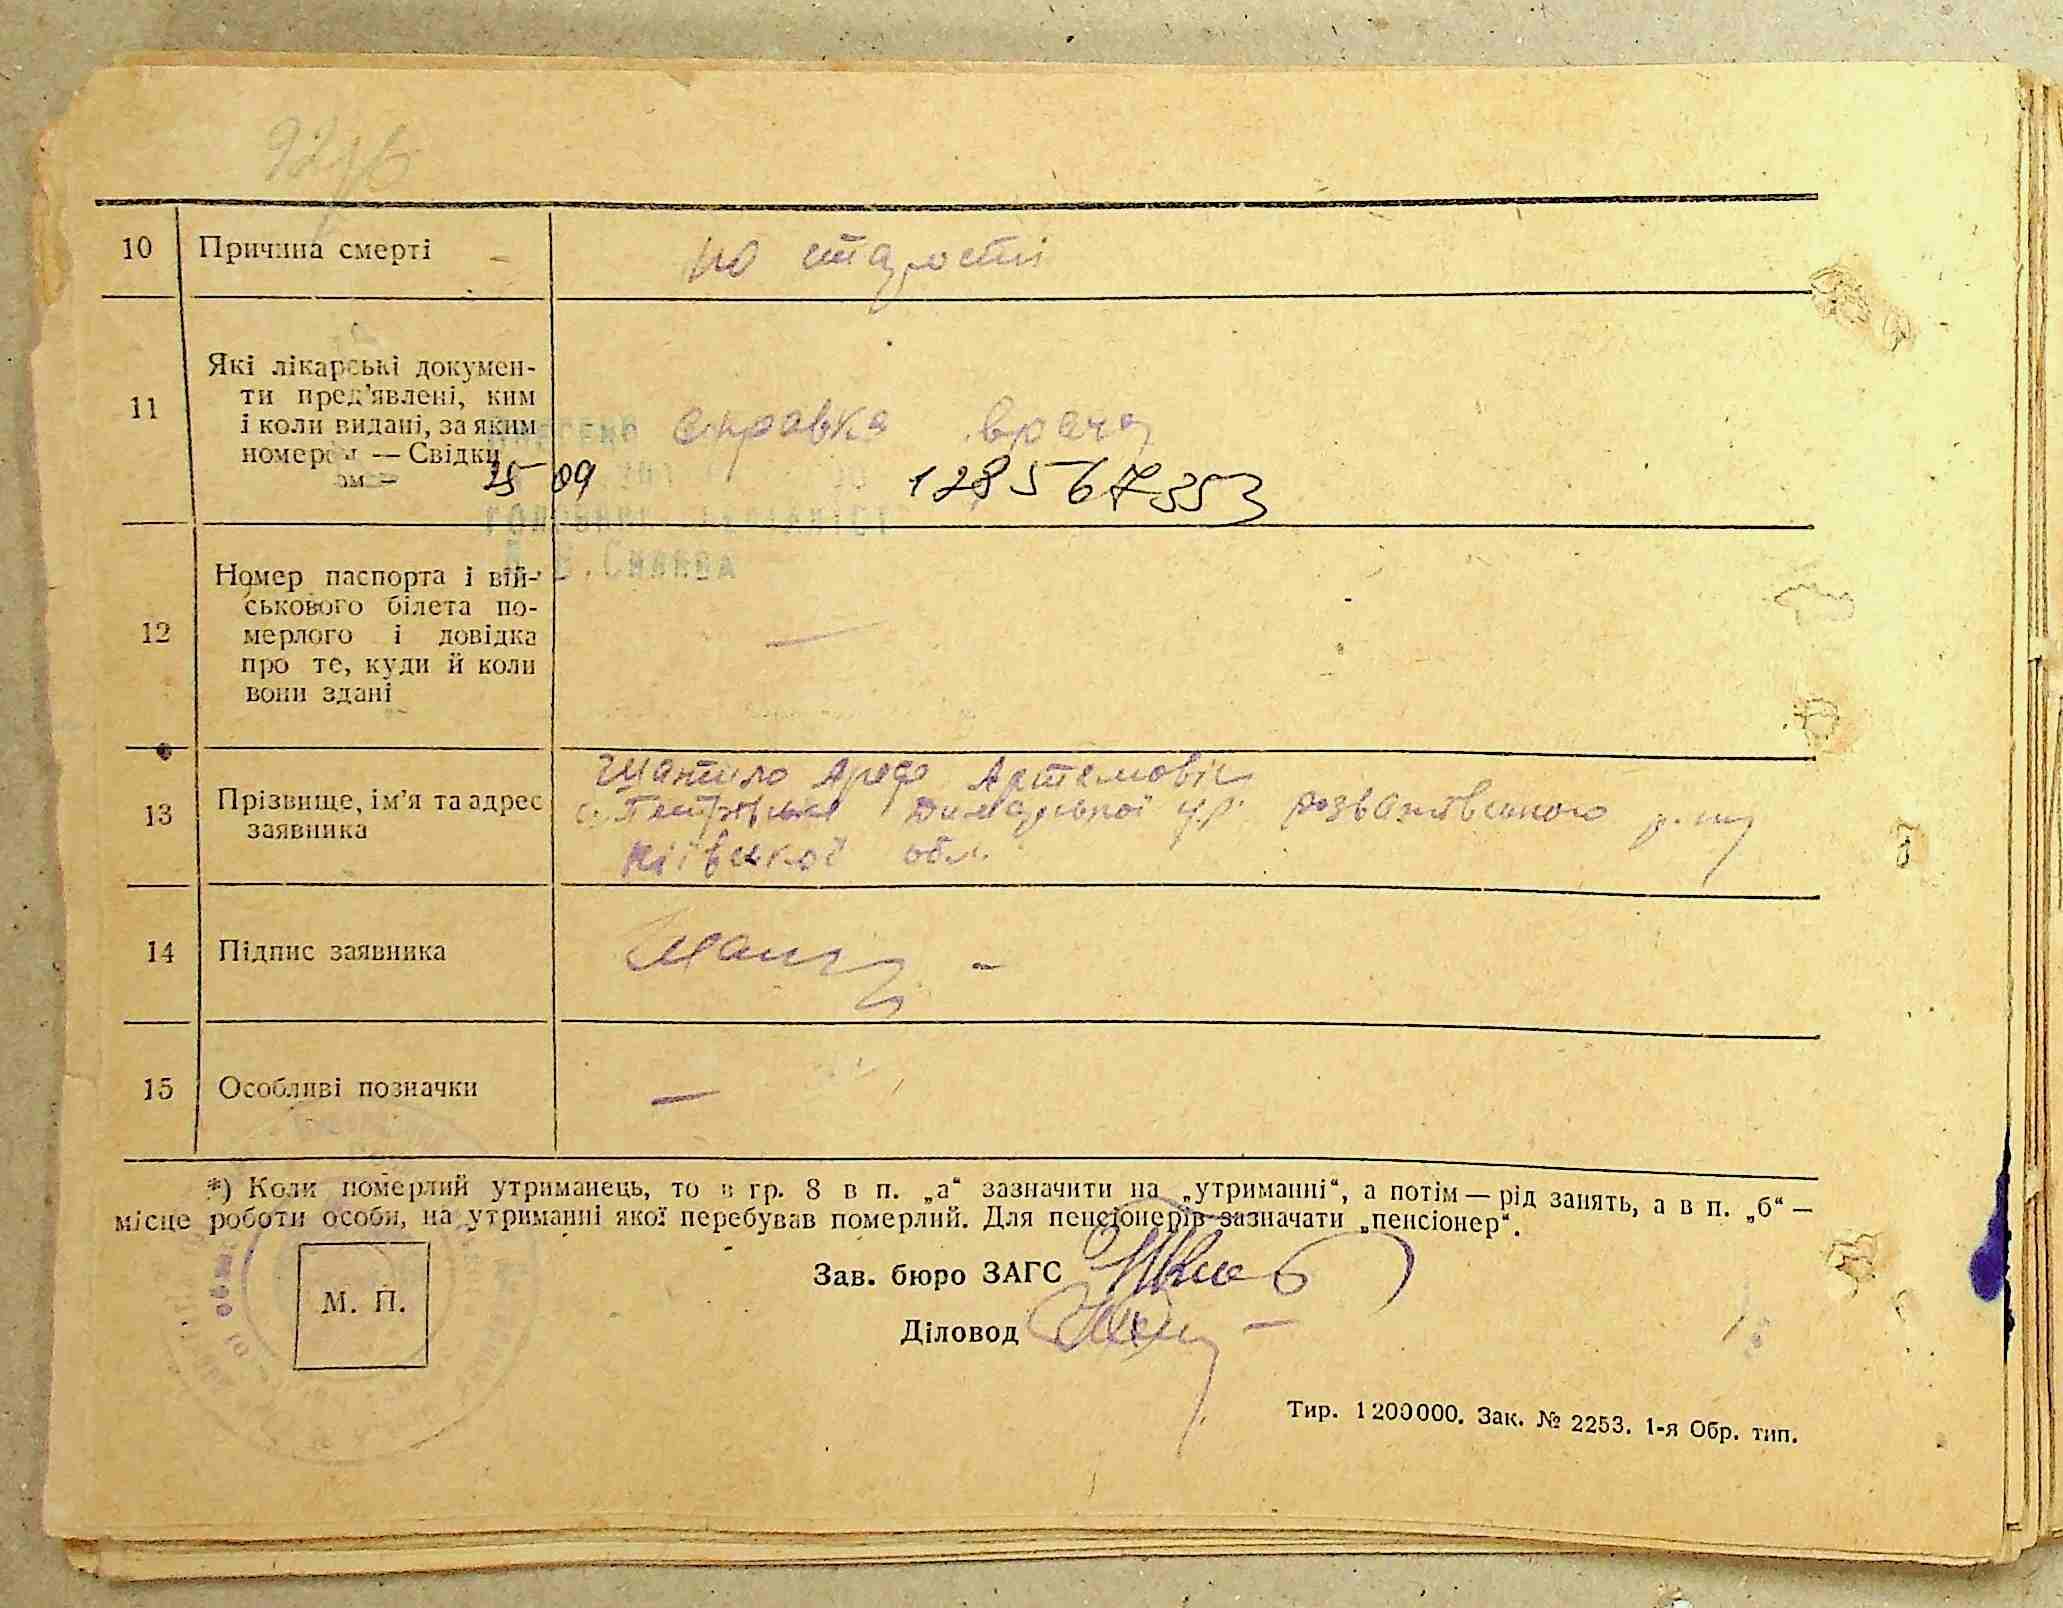 10 Причина смерті по старости
11 Які лікарські докумен-
ти пред'явлені, ким
і коли видані, за яким
номером — Свідки справка врача
25 09 128567353
Головний спеціаліст
12 Номер паспорта і вій-
ськового білета по-
мерлого і довідка
про те, куди й коли
вони здані —
13 Прізвище, ім'я та адрес
заявника
Артемовіч
с. розважівського р-ну
Київської обл.
14 Підпис заявника
15 Особливі позначки —
*) Коли померлий утриманець, то в гр. 8 в п. „а“ зазначити на „утриманні“, а потім — рід занять, а в п. „б“ —
місце роботи особи, на утриманні якої перебував померлий. Для пенсіонерів зазначати „пенсіонер“.
М. П.
Зав. бюро ЗАГС
Діловод
Тир. 1200000. Зак. № 2253. 1-я Обр. тип.